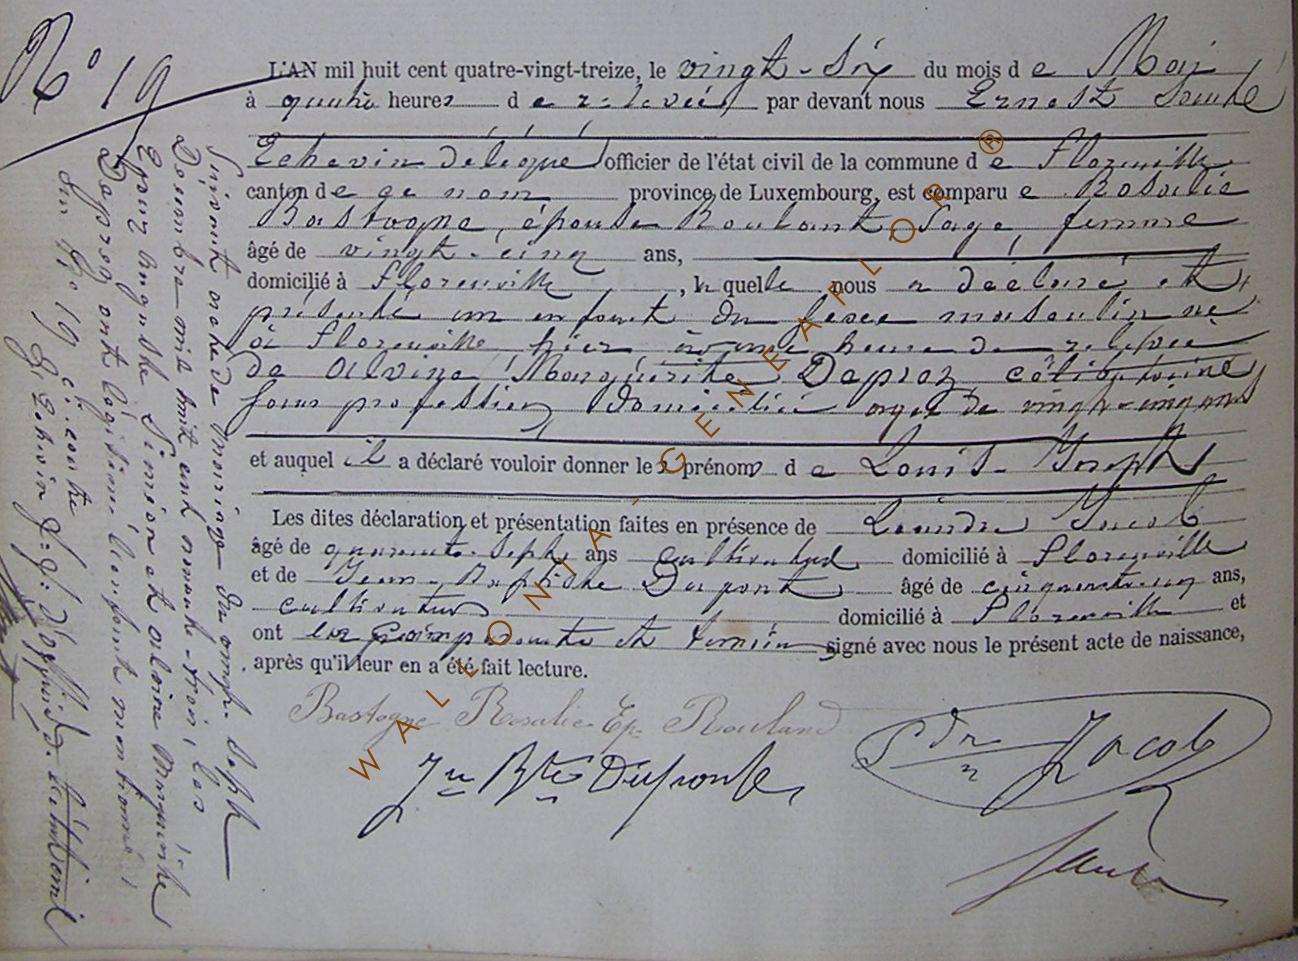 N° 19
L'AN mil huit cent quatre-vingt-treize, le vingt-six du mois de Mai
à quatre heures de relevée, par devant nous Ernest
Echevin délégué officier de l'état civil de la commune de Florenville
canton de ce nom province de Luxembourg, est comparue Rosalie
Bastogne, épouse Roulant, Sage femme
âgé de vingt-cinq ans,
domicilié à Florenville, laquelle nous a déclaré et
présenté un enfant du sexe masculin né
à Florenville hier, à une heure de relevée
de Alvina Marguérite Daproz, célibataire
sans profession domiciliée âgée de vingt-cinq ans
et auquel il a déclaré vouloir donner les prénoms de Louis-Joseph
Les dites déclaration et présentation faites en présence de Léandre Jacob
âgé de quarante-sept ans cultivateur domicilié à Florenville
et de Jean-Baptiste Dupont âgé de cinquante-un ans,
cultivateur domicilié à Florenville et
ont les comparante et témoins signé avec nous le présent acte de naissance,
après qu'il leur en a été fait lecture.
Bastogne Rosalie Ep. Rouland
Jn Bte Dupont
Jacob
Suivant acte de mariage du
Décembre mil huit cent nonante-trois, les
Epoux Auguste Simon et Alvina Marguerite
Daproz ont légitimé l'enfant mentionné
au N° 19 ci-contre
L'Echevin d'off. de l'état civil
WALLONIA-GENEAPLOR®